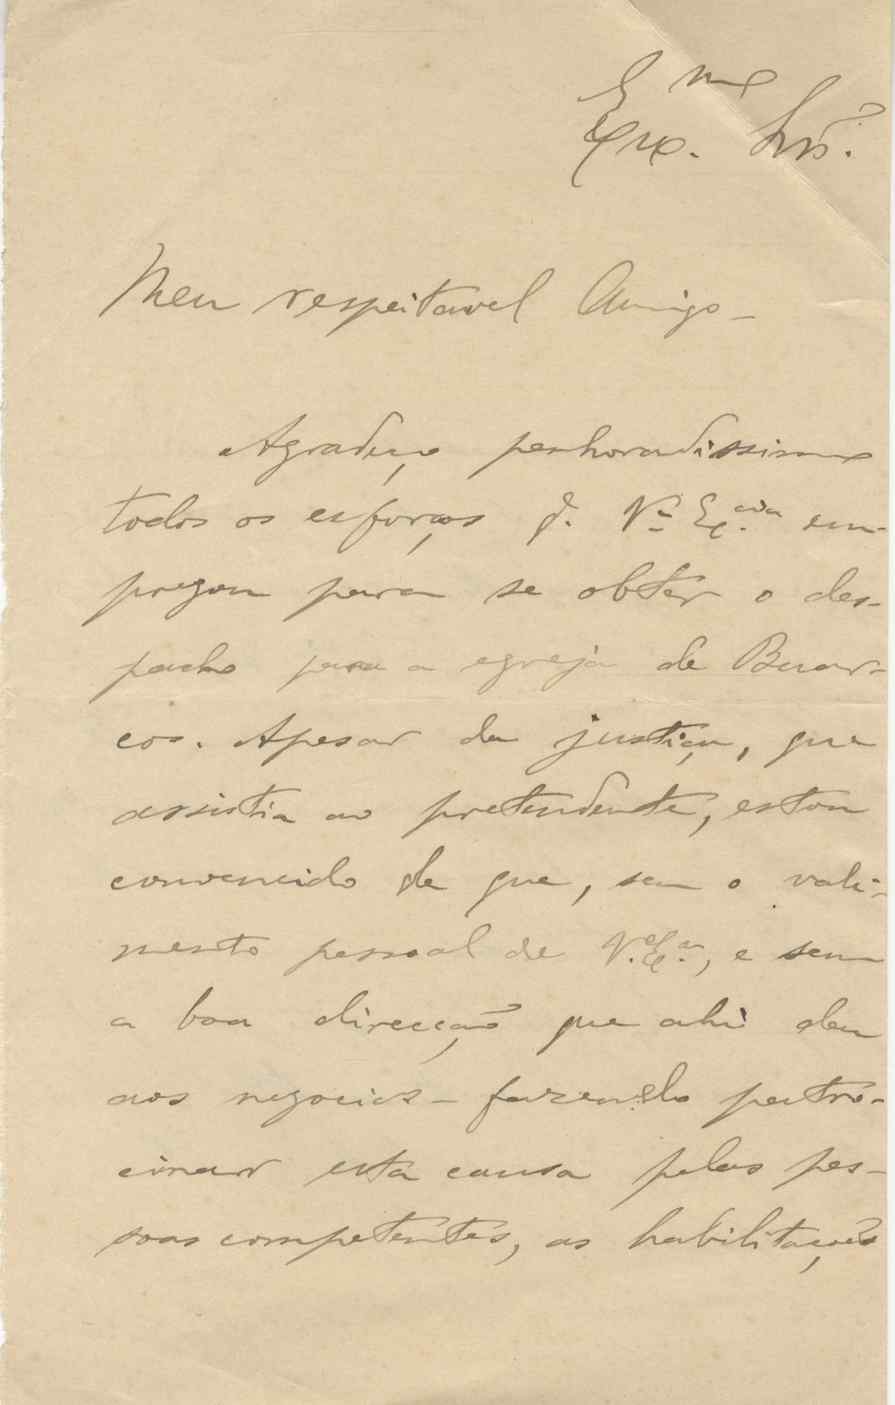 Exmo. Snr.
Meu respeitavel Amigo -
Agradeço penhoradissimo
todos os esforços q. Vª Exª.cia em-
pregou para se obter o des-
pacho para a egreja de Buar-
cos. Apesar da justiça, que
assistia ao pretendente, estou
convencido de que, sem o vali-
mento pessoal de V. Exª., e sem
a boa direcção que ahi deu
aos negocios - fazendo patro-
cinar esta causa pelas pes-
soas competentes, as habilitações